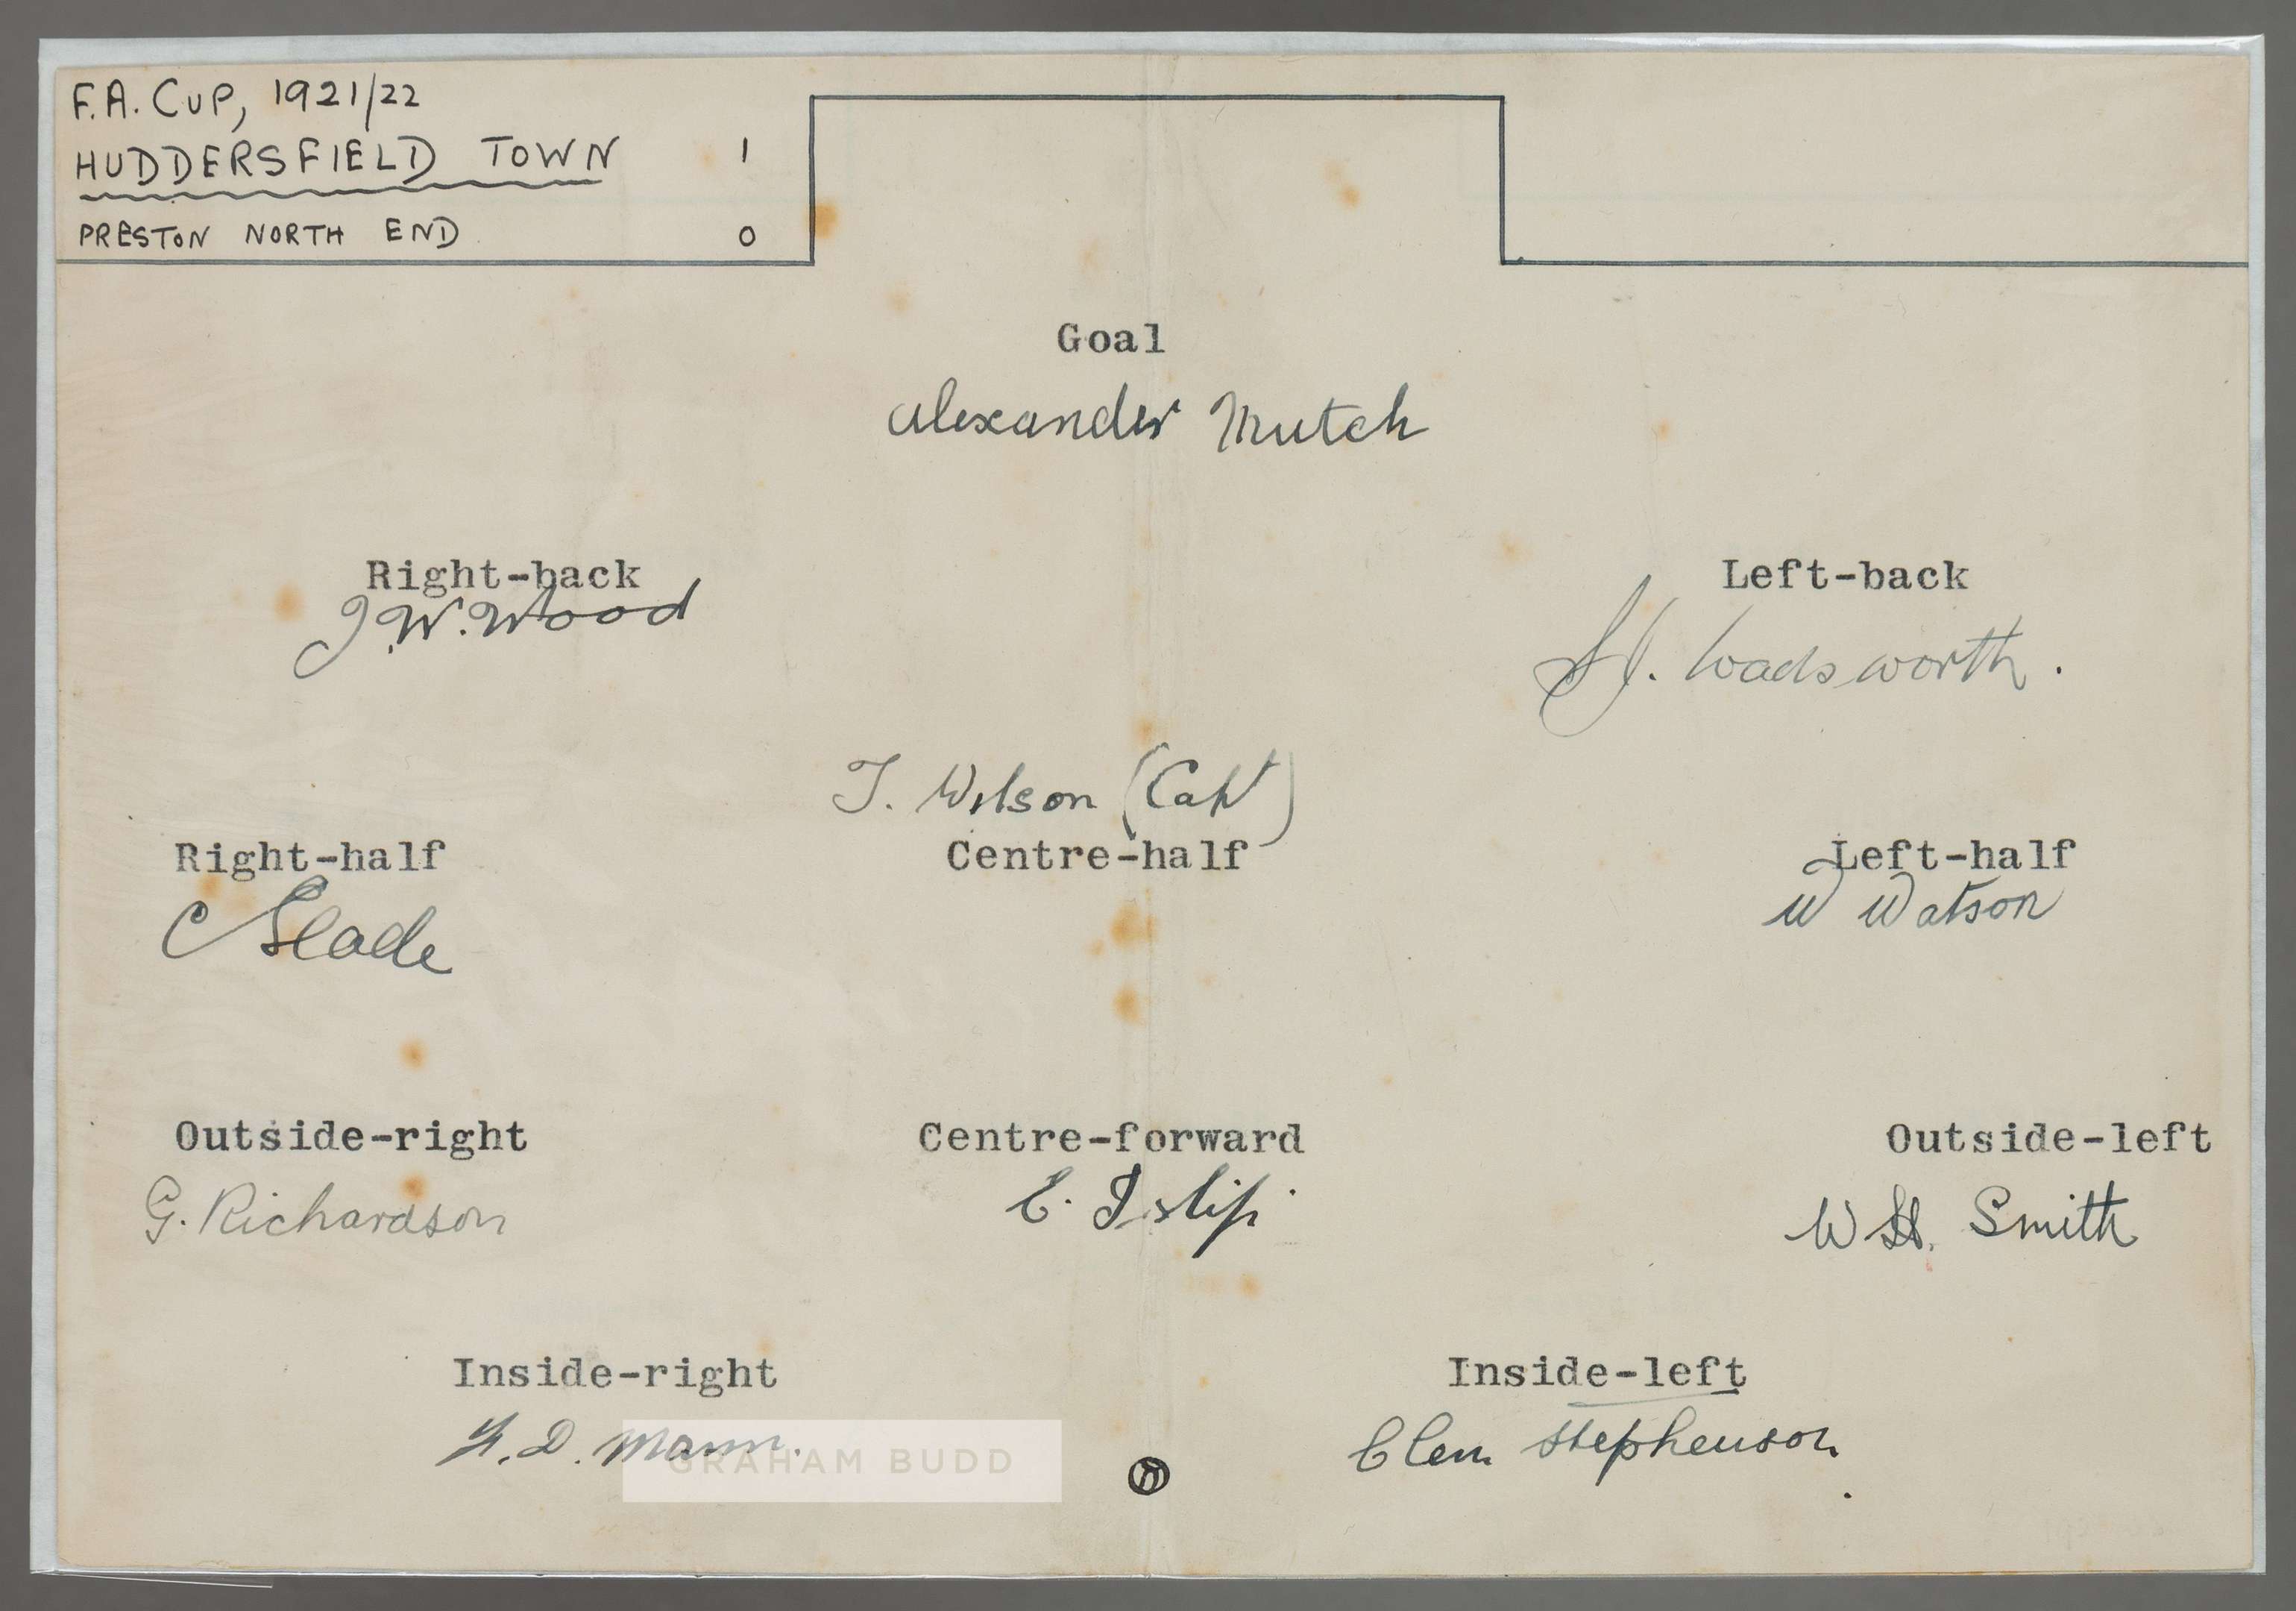 F.A. CUP, 1921/22
HUDDERSFIELD TOWN 1
PRESTON NORTH END 0
Goal
Alexander Mutch
Right-back Left-back
J.W. Wood H. Wadsworth.
T. Wilson (Capt)
Right-half Centre-half Left-half
C Slade W Watson
Outside-right Centre-forward Outside-left
G. Richardson E. Islip. W H. Smith
Inside-right Inside-left
F. D. Mann. Clem Stephenson.
GRAHAM BUDD